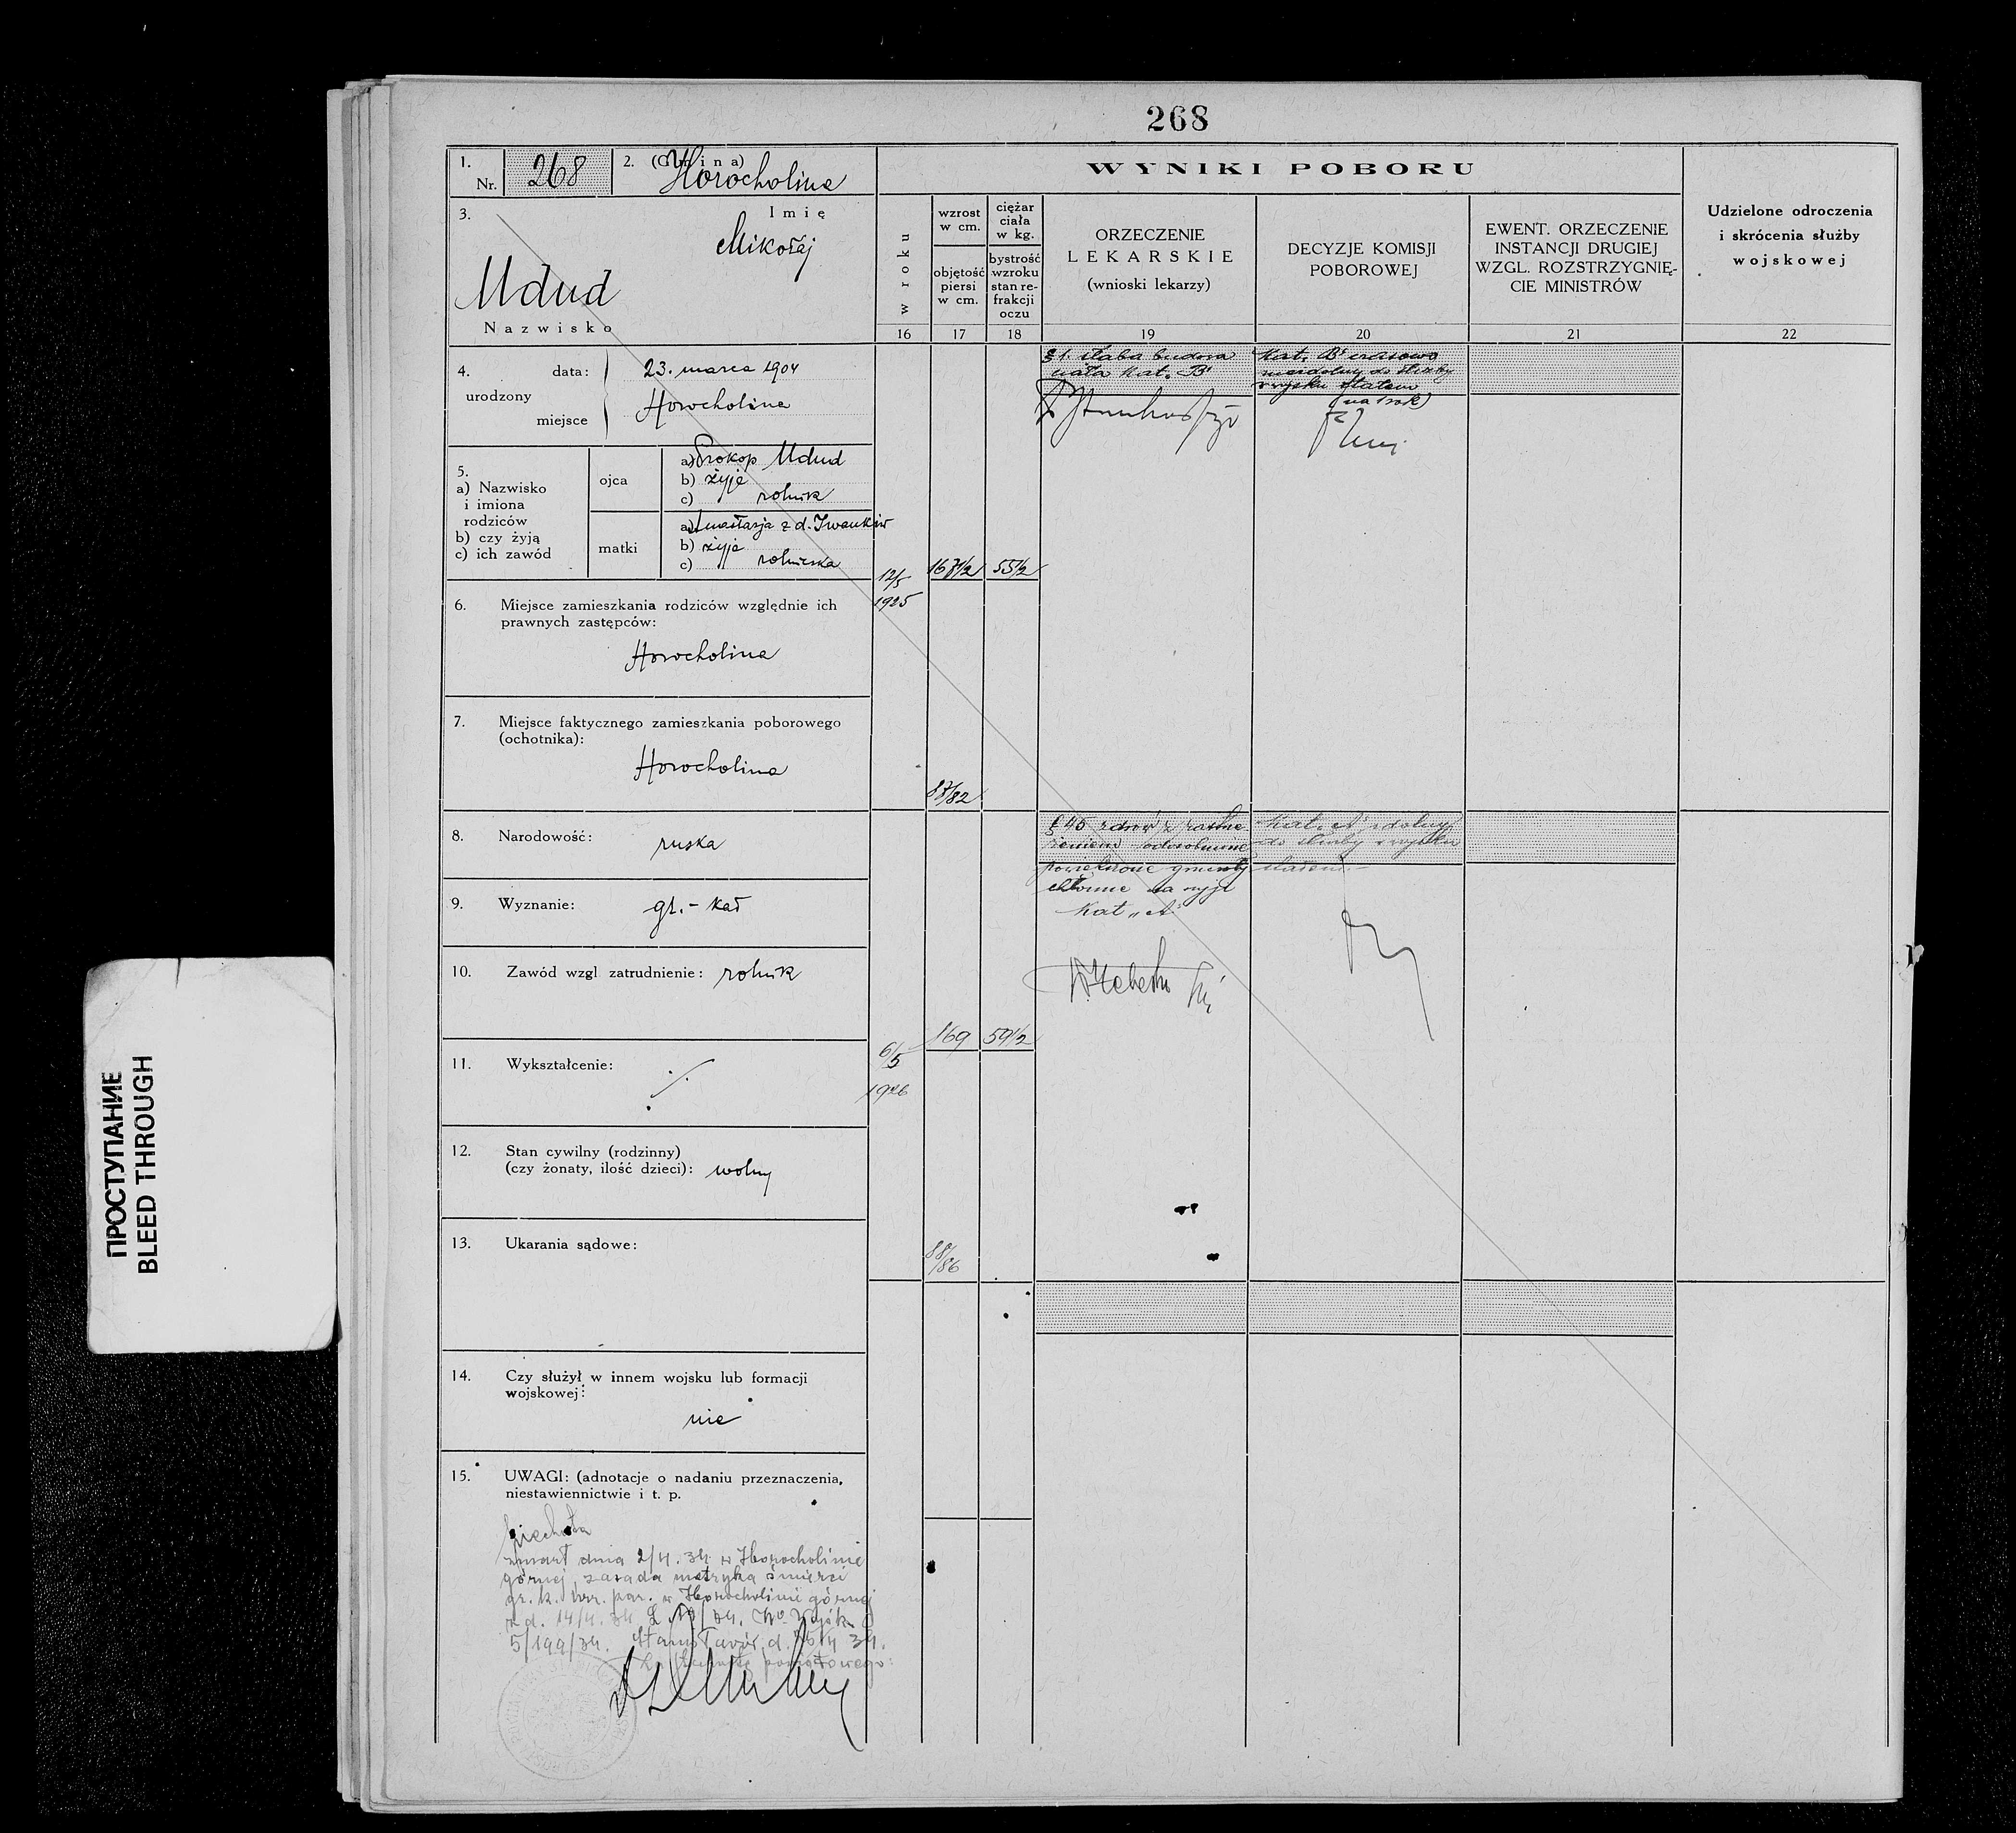 268
1.
Nr. 268
2. (Gmina) Horocholina
3.
Imię
Mikołaj
Udud
Nazwisko
4.
urodzony
data: 23. marca 1904
miejsce Horocholina
5.
a) Nazwisko
i imiona
rodziców
b) czy żyją
c) ich zawód
ojca
a) Prokop Udud
b) żyje
c) rolnik
matki
a) Anastazja z d. Iwanków
b) żyje
c) rolniczka
6. Miejsce zamieszkania rodziców względnie ich
prawnych zastępców:
Horocholina
7. Miejsce faktycznego zamieszkania poborowego
(ochotnika):
Horocholina
8. Narodowość: ruska
9. Wyznanie: gr.-kat
10. Zawód wzgl zatrudnienie: rolnik
11. Wykształcenie: ./.
12. Stan cywilny (rodzinny)
(czy żonaty, ilość dzieci): wolny
13. Ukarania sądowe:
14. Czy służył w innem wojsku lub formacji
wojskowej:
nie
15. UWAGI: (adnotacje o nadaniu przeznaczenia,
niestawiennictwie i t. p.
piechota
zmarł dnia 2/4. 34 w Horocholinie
górnej, zasada metryka śmierci
gr. k. urz. par. w Horocholinie górnej
z d. 14/4. 34
5/199/34. Stanisławów d. 34.
powiatowego:
WYNIKI POBORU
w roku
16
wzrost
w cm.
objętość
piersi
w cm.
17
ciężar
ciała
w kg.
bystrość
wzroku
stan re-
frakcji
oczu
18
ORZECZENIE
LEKARSKIE
(wnioski lekarzy)
19
DECYZJE KOMISJI
POBOROWEJ
20
EWENT. ORZECZENIE
INSTANCJI DRUGIEJ
WZGL. ROZSTRZYGNIĘ-
CIE MINISTRÓW
21
Udzielone odroczenia
i skrócenia służby
wojskowej
22
12/5
1925
55 1/2
/82
§ 1. słaba budowa
ciała kat. "B"
Kat. "B" czasowo
niezdolny do służby
w wojsku stałem
(na 1 rok)
6/5
1926
169
59 1/2
88/
/86
§ 45 zdrów z zastrze
żeniem odosobnione
powiększone gruczoły
chłonne na szyji
Kat „A"
Kat. "A" zdolny
do służby w wojsku
stałem.-
ПРОСТУПАНИЕ
BLEED THROUGH